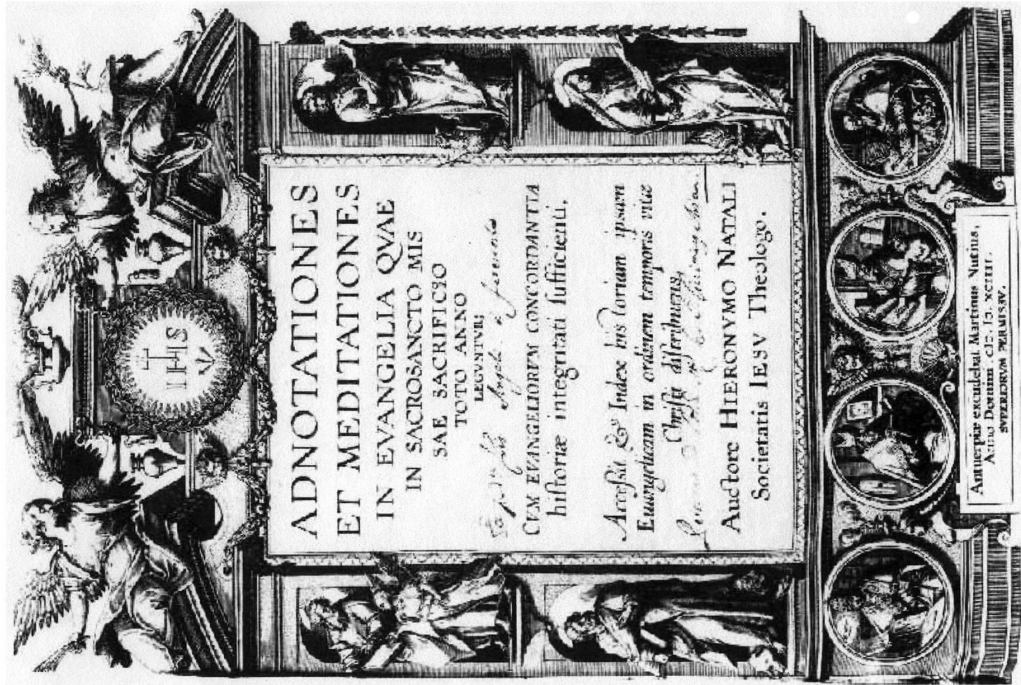 IHS
ADNOTATIONES
ET MEDITATIONES
IN EVANGELIA QVAE
IN SACROSANCTO MIS
SAE SACRIFICIO
TOTO ANNO
LEGVNTVR;
CVM EVANGELIORVM CONCORDANTIA
historiæ integritati sufficienti.
Accessit & Index historiam ipsam
Euangelicam in ordinem temporis vitæ
Christi distribuens.
Auctore HIERONYMO NATALI
Societatis IESV Theologo.
Antuerpiæ excudebat Martinus Nutius,
Anno Domini
SVPERIORVM PERMISSV.